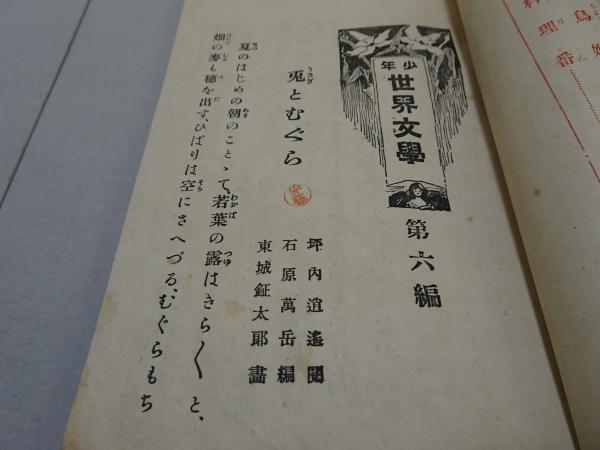 少年
世界文學
第六編
兎とむぐら
うさぎ
坪內逍遙閱
石原萬岳編
東城鉦太郞畵
夏のはじめの朝のことゝて、若葉の露はきら〱と、
畑の麥も穗を出す、ひばりは空にさへづる、むぐらもち
理番
鳥